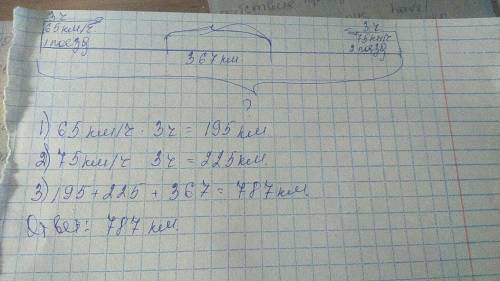 3ч 3ч
65км/ч. 75км/ч
1 поезд 2 поезд
367км
?
1) 65 км/ч · 3ч = 195 км.
2) 75км/ч 3ч = 225км.
3) 195 + 225 + 367 = 787 км.
Ответ: 787 км.